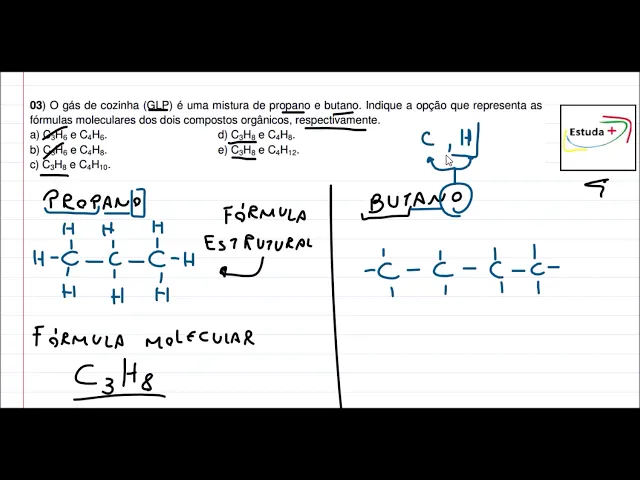 03) O gás de cozinha (GLP) é uma mistura de propano e butano. Indique a opção que representa as
fórmulas moleculares dos dois compostos orgânicos, respectivamente.
a) C₃H₆ e C₄H₆.
b) C₃H₆ e C₄H₈.
c) C₃H₈ e C₄H₁₀.
d) C₃H₈ e C₄H₈.
e) C₃H₈ e C₄H₁₂.
Estuda +
C , H
PROPANO
BUTANO
FÓRMULA
ESTRUTURAL
H H H
H-C-C-C-H
H H H
-C-C-C-C-
FÓRMULA MOLECULAR
C₃H₈